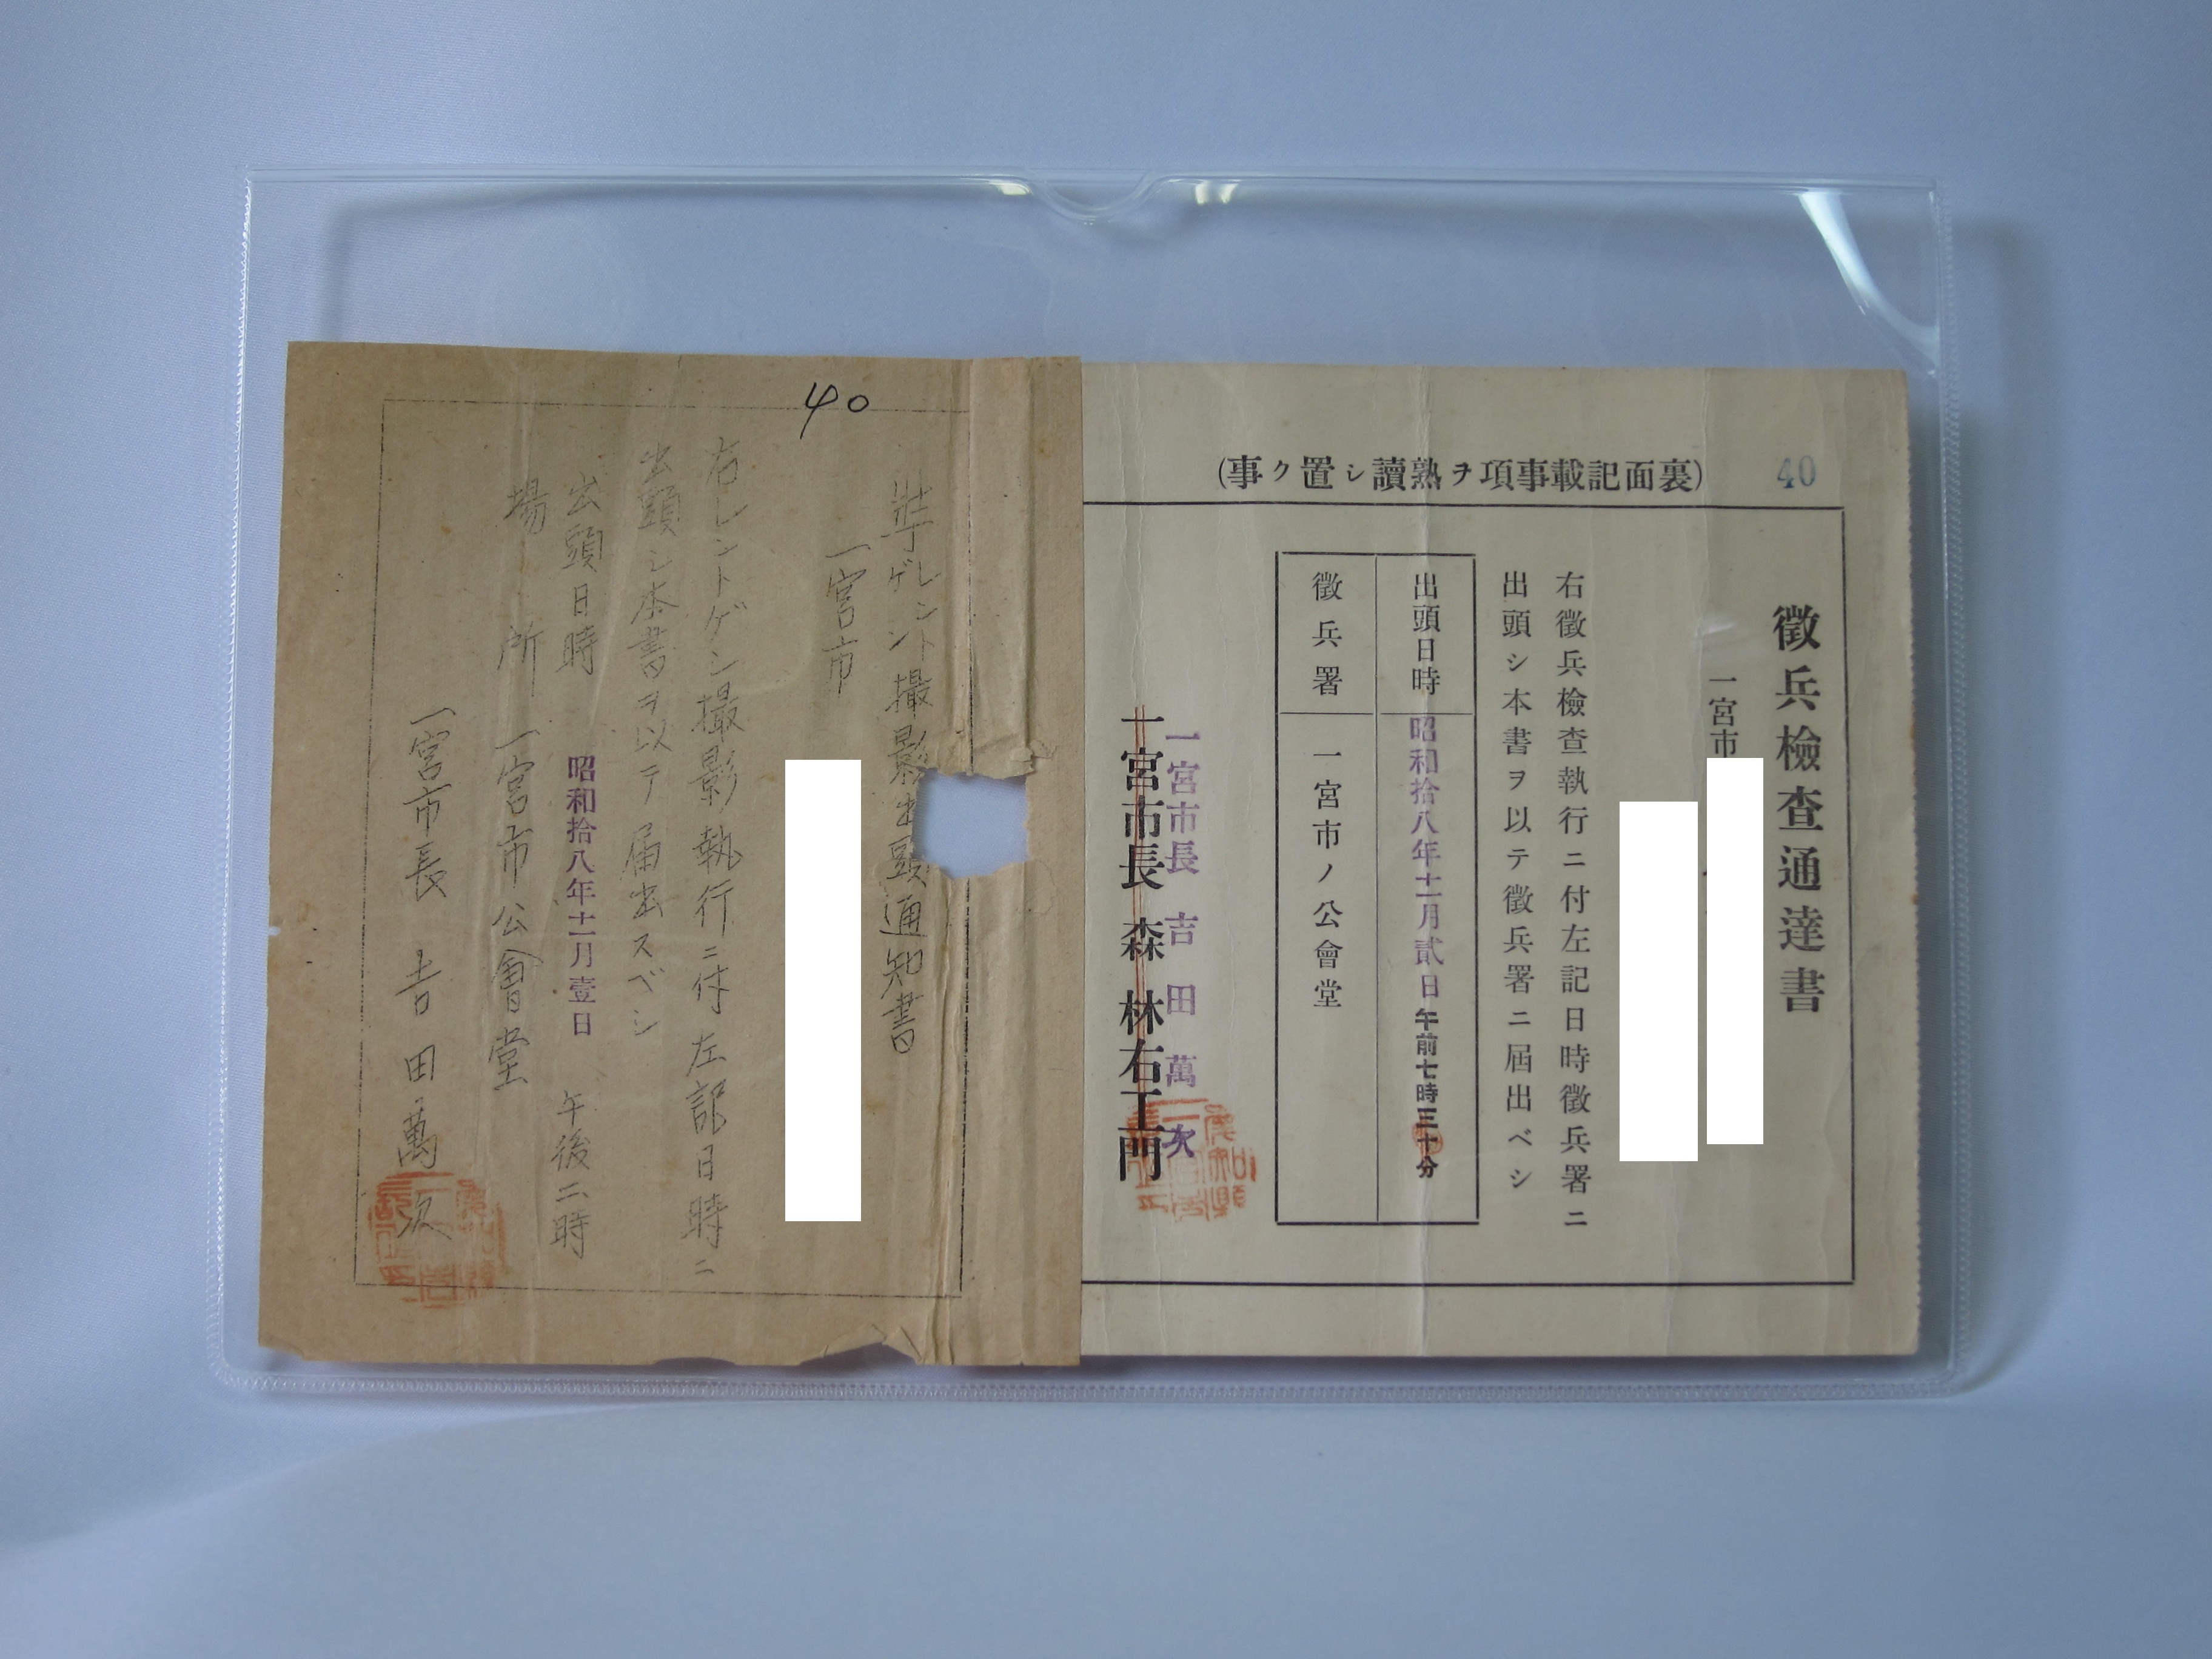 40
(裏面記載事項ヲ熟讀シ置ク事)
徵兵檢查通達書
一宮市
右徵兵檢查執行ニ付左記日時徵兵署ニ
出頭シ本書ヲ以テ徵兵署ニ屆出ベシ
出頭日時 昭和拾八年十二月貳日午前七時三十分
徵兵署 一宮市ノ公會堂
一宮市長 吉田萬次
一宮市長 森 林右工門
40
壯丁レントゲン撮影出頭通知書
一宮市
右レントゲン撮影執行ニ付左記日時ニ
出頭シ本書ヲ以テ届出スベシ
出頭日時 昭和拾八年十二月壹日 午後二時
場所 一宮市公會堂
一宮市長 吉田萬次